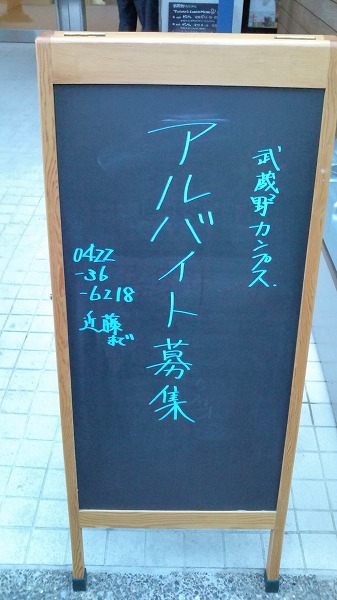 武蔵野カンプス.
アルバイト募集
0422
-36
-6218
近藤
まで